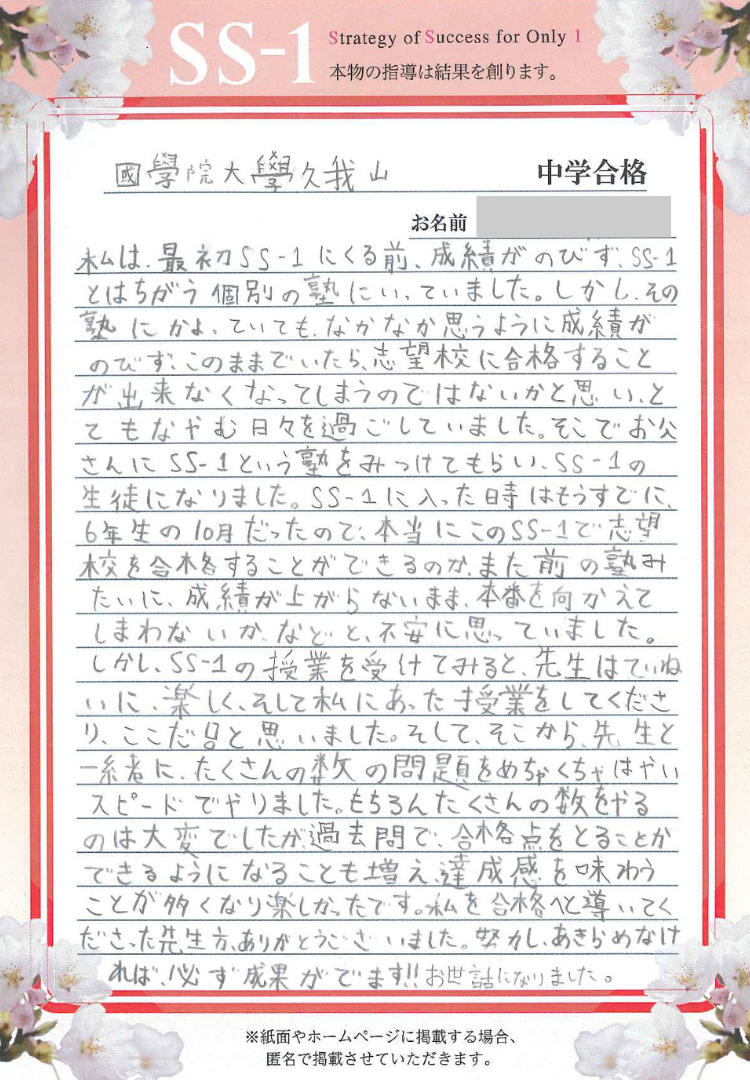 SS-1
Strategy of Success for Only 1
本物の指導は結果を創ります。
國學院大學久我山 中学合格
お名前
私は、最初SS-1にくる前、成績がのびず、SS-1
とはちがう個別の塾にいっていました。しかし、その
塾にかよっていても、なかなか思うように成績が
のびず、このままでいたら、志望校に合格すること
が出来なくなってしまうのではないかと思い、と
てもなやむ日々を過ごしていました。そこでお父
さんにSS-1という塾をみつけてもらい、SS-1の
生徒になりました。SS-1に入った時はもうすでに、
6年生の10月だったので、本当にこのSS-1で志望
校を合格することができるのか、また前の塾み
たいに、成績が上がらないまま、本番を向かえて
しまわないかなどと、不安に思っていました。
しかし、SS-1の授業を受けてみると、先生はていね
いに、楽しく、そして私にあった授業をしてくださ
り、ここだ!と思いました。そして、そこから、先生と
一緒に、たくさんの数の問題をめちゃくちゃはやい
スピードでやりました。もちろんたくさんの数をやる
のは大変でしたが、過去問で、合格点をとることが
できるようになることも増え、達成感を味わう
ことが多くなり楽しかったです。私を合格へと導いてく
ださった先生方、ありがとうございました。努力し、あきらめなけ
れば、必ず成果がでます!!お世話になりました。
※紙面やホームページに掲載する場合、
匿名で掲載させていただきます。